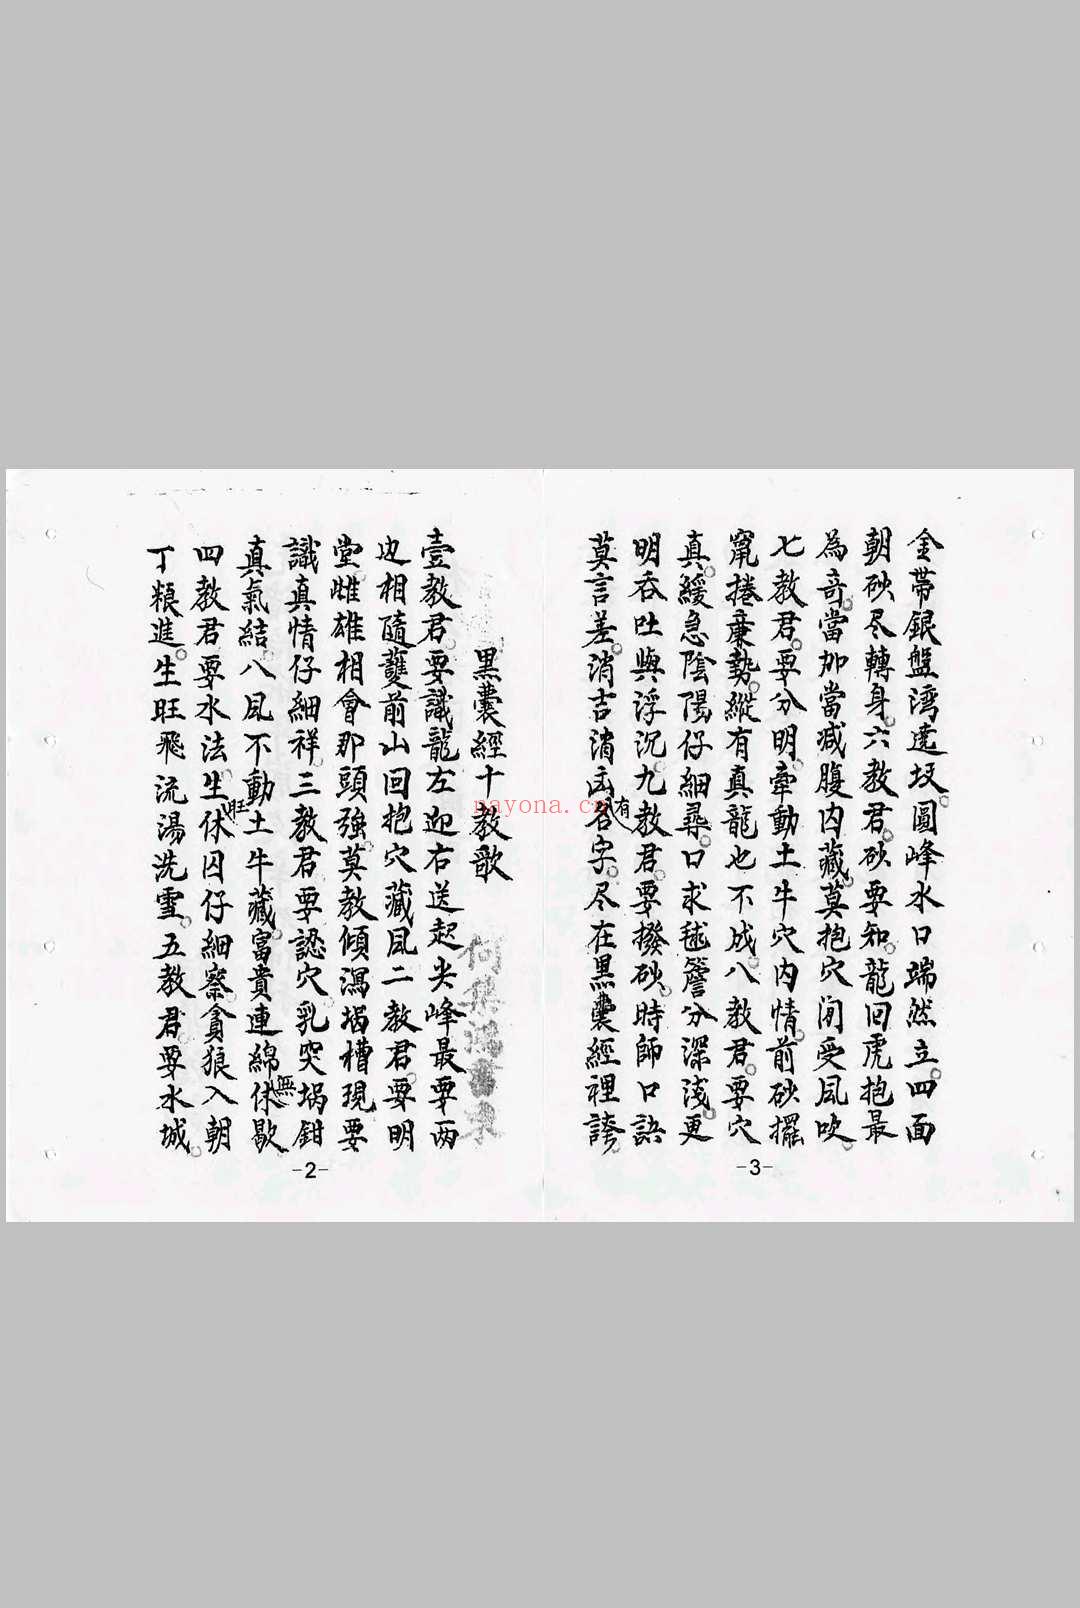 黑囊經十教歌
壹教君要識龍左迎右送起尖峰最要兩
边相隨護前山回抱穴藏風二教君要明
堂雌雄相會那頭強莫教傾瀉堝槽現要
識真情仔細祥三教君要認穴乳突堝鉗
真氣結八風不動土牛藏富貴連綿無休歇
四教君要水法生旺休囚仔細察貪狼入朝
丁糧進生旺飛流湯洗雪五教君要水城
-2-
金帶銀盤灣遶圓峰水口端然立四面
朝砂尽轉身六教君砂要知龍回虎抱最
為奇當加當减腹内藏莫抱穴閒受風吹
七教君要分明牽動土牛穴内情前砂擺
竄捲簾勢縱有真龍也不成八教君要穴
真緩急陰陽仔細尋口求毬簷分深淺更
明吞吐與浮沉九教君要撥砂時師口訣
莫言差消吉消凶有各字尽在黑囊經裡誇
-3-
nayona.cn